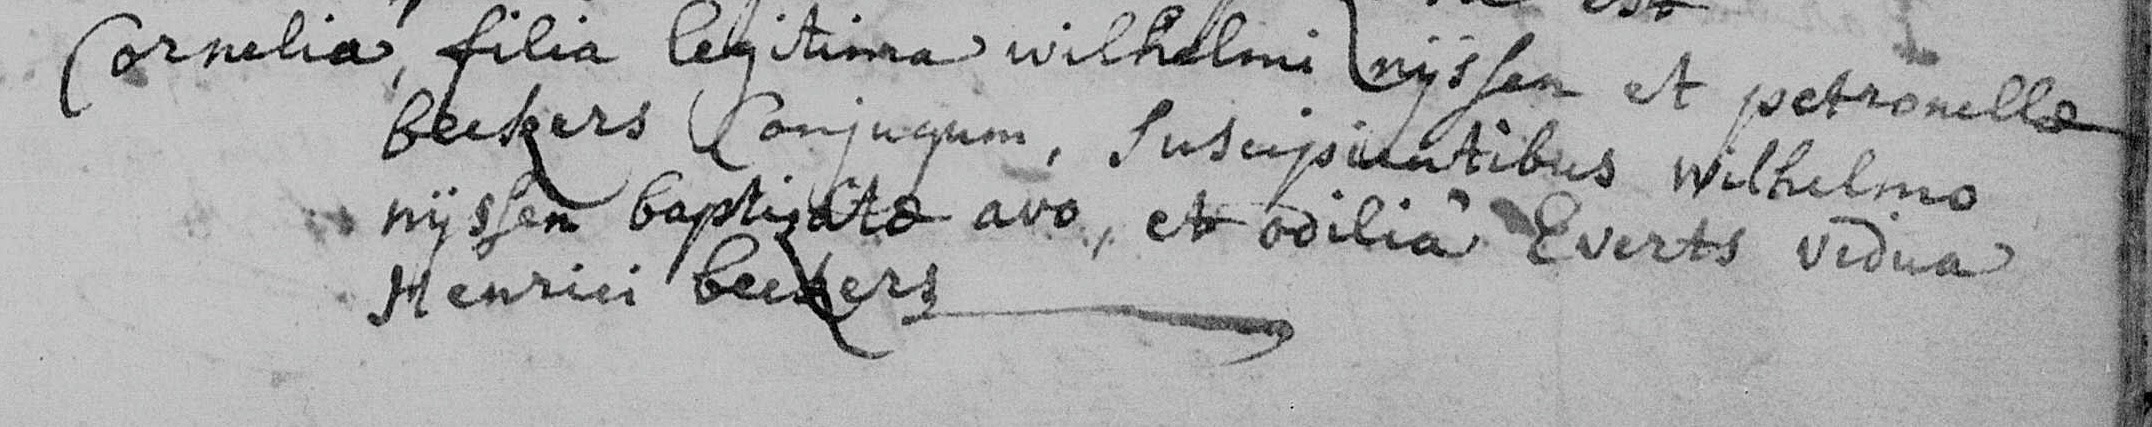 est
Cornelia, filia legitima wilhelmi nÿssen et petronellæ
beekers Conjugum, Suscipientibus wilhelmo
nÿssen baptizatæ avo, et odiliâ Everts vidua
Henrici beekers